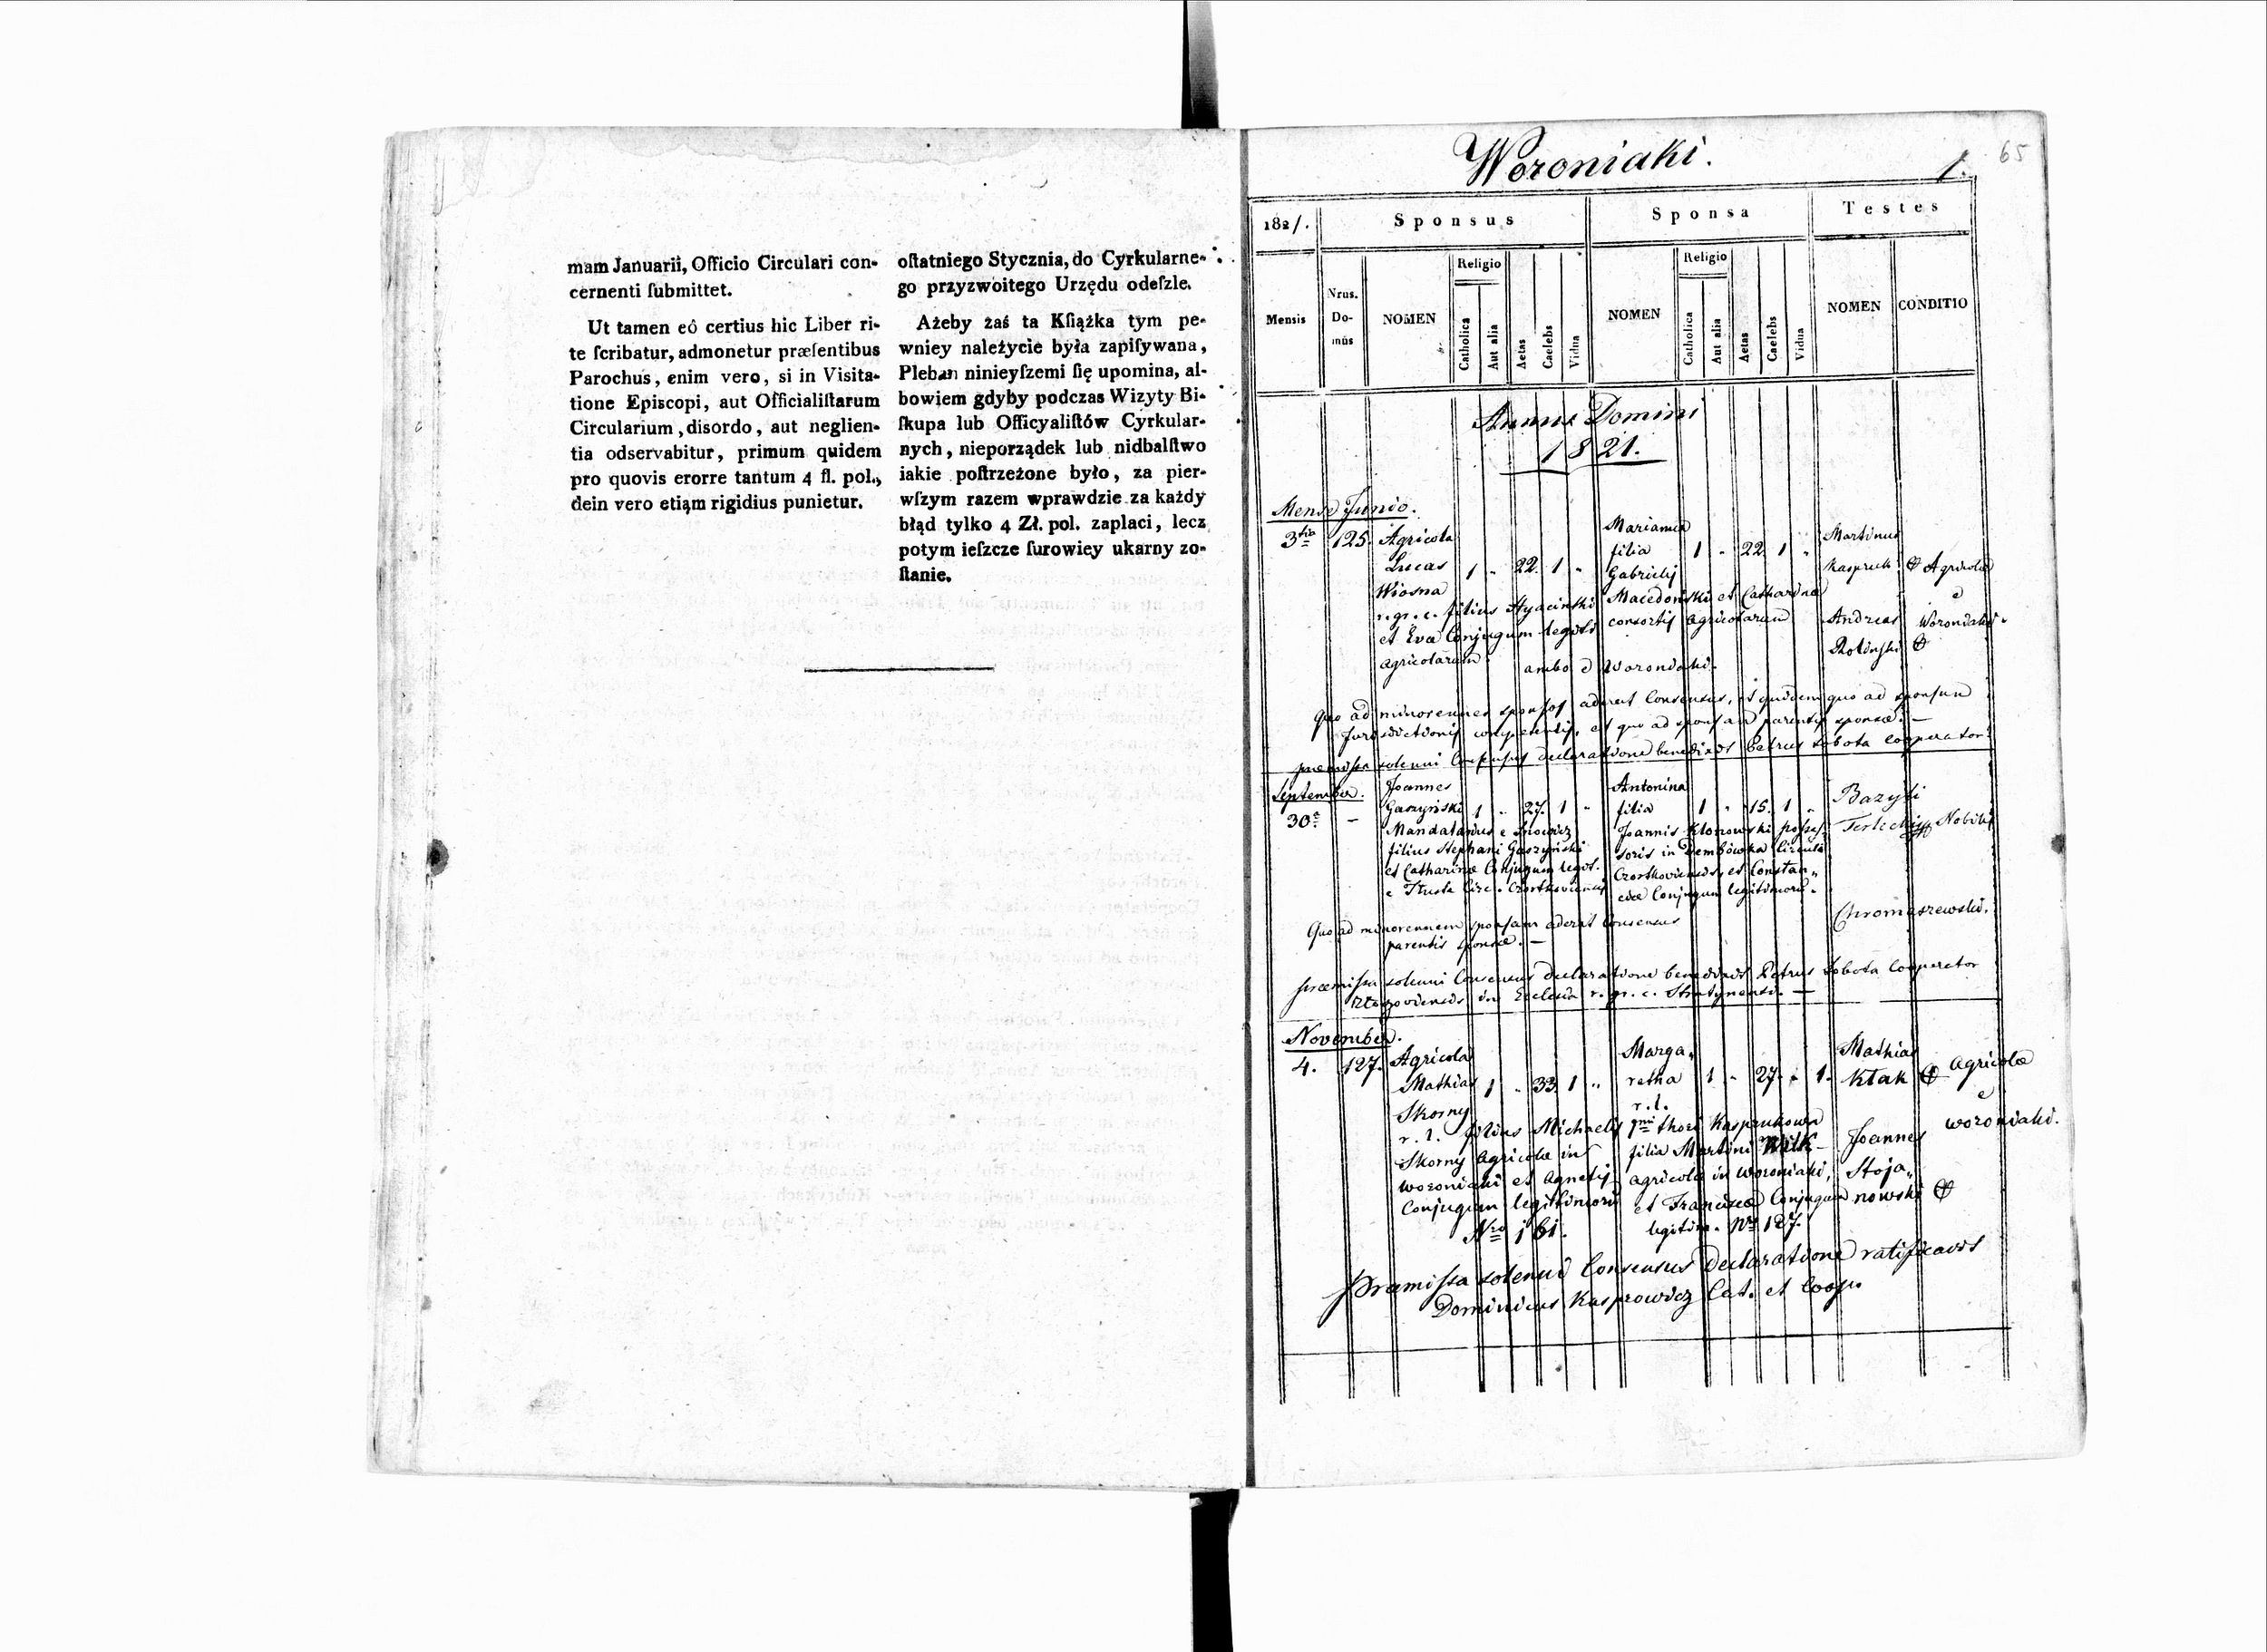 mam Januarii, Officio Circulari con-
cernenti ſubmittet.
Ut tamen eó certius hic Liber ri-
te ſcribatur, admonetur præſentibus
Parochus, enim vero, si in Visita-
tione Episcopi, aut Officialiſtarum
Circularium, disordo, aut neglien-
tia odservabitur, primum quidem
pro quovis erorre tantum 4 fl. pol.,
dein vero etiąm rigidius punietur.
oſtatniego Stycznia, do Cyrkularne-
go przyzwoitego Urzędu odeſzle.
Ażeby zaś ta Kſiążka tym pe-
wniey należycie była zapiſywana,
Pleban ninieyſzemi ſię upomina, al-
bowiem gdyby podczas Wizyty Bi-
ſkupa lub Officyaliſtów Cyrkular-
nych, nieporządek lub nidbalſtwo
iakie poſtrzeżone było, za pier-
wſzym razem wprawdzie za każdy
błąd tylko 4 Zł. pol. zaplaci, lecz
potym ieſzcze ſurowiey ukarny zo-
ſtanie.
Woroniaki.
1.
65
1821.
Sponsus
Sponsa
Testes
Mensis
Nrus. Do- mûs
NOMEN
Religio
Catholica
Aut alia
Aetas
Caelebs
Vidua
NOMEN
Religio
Catholica
Aut alia
Aetas
Caelebs
Vidua
NOMEN
CONDITIO
Annus Domini
1821.
Mense Junio.
3tia 125. Agricola
Lucas 1 " 22. 1 "
Wiosna
r. gr. c. filius Hyacinthi
et Eva Conjugum legiti
agricolarum
Marianna
filia 1 " 22 1 "
Gabrielis
Macedoński et Catharinæ
consortis agricolarum
ambo è Woroniaki.
Martinus
Kaspruk Agricolæ
è
Andreas Woroniaki.
Roliński
Quo ad minorennes sponsos aderat Consensus, et quidem quo ad sponsum
Jurisdictionis competentis, et quo ad sponsam parentis sponsæ. —
præmissa solenni Consensus declaratione benedixit Petrus Sobota cooperator
September.
30a — Joannes
Gaszyński 1 " 27. 1 "
Mandatarius e
filius Stephani Gaszyński
et Catharinæ Conjugum legit.
e Circ. Czortkoviensis
Antonina
filia 1 " 15. 1 "
Joannis Kłonowski posses-
soris in Dembówka Circulo
Czortkoviensis, et Constan-
ciæ Conjugum legitimoru.
Bazyli
Terlecki Nobiles
Chromaszewski.
Quo ad minorennem sponsam aderat Consensus
parentis sponsæ. —
præmissa solenni Consensus declaratione benedixit Petrus Sobota Cooperator
in Ecclesia r. gr. c. —
November.
4. 127. Agricola
Mathias 1 " 33 1 "
Skorny
r. l. filius Michaelis
Skorny agricolæ in
Woroniaki et Agnetis
Conjugum legitimoru
Nro 161.
Marga-
retha 1 " 27. " 1.
r. l.
1mi thori Kasprukowa
filia Martini Wilk
agricolæ in Woroniaki,
et Franciscæ Conjugum
legitim. Nro 127.
Mathias
Kłak agricolæ
è
Woroniaki.
Joannes
Stoja-
nowski
Præmissa solenni Consensus Declaratione ratificavit
Dominicus Kasprowicz Cat. et Coop.